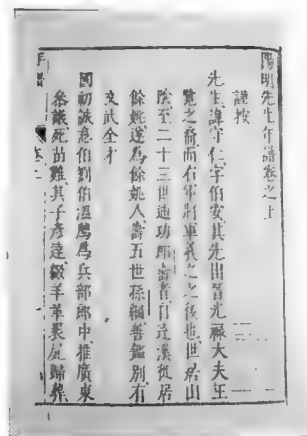 陽明先生年譜卷之上
謹按
先生諱守仁字伯安其先出晉光祿大夫王
覽之裔而右軍將軍羲之之後也世居山
陰至二十三世迪功郎壽者自達溪徙居
餘姚遂爲餘姚人壽五世孫綱善鑑別有
文武全才
國初誠意伯劉伯溫薦爲兵部郎中推廣東
參議死苗難其子彥達綴羊革褁屍歸葬
年譜 卷上